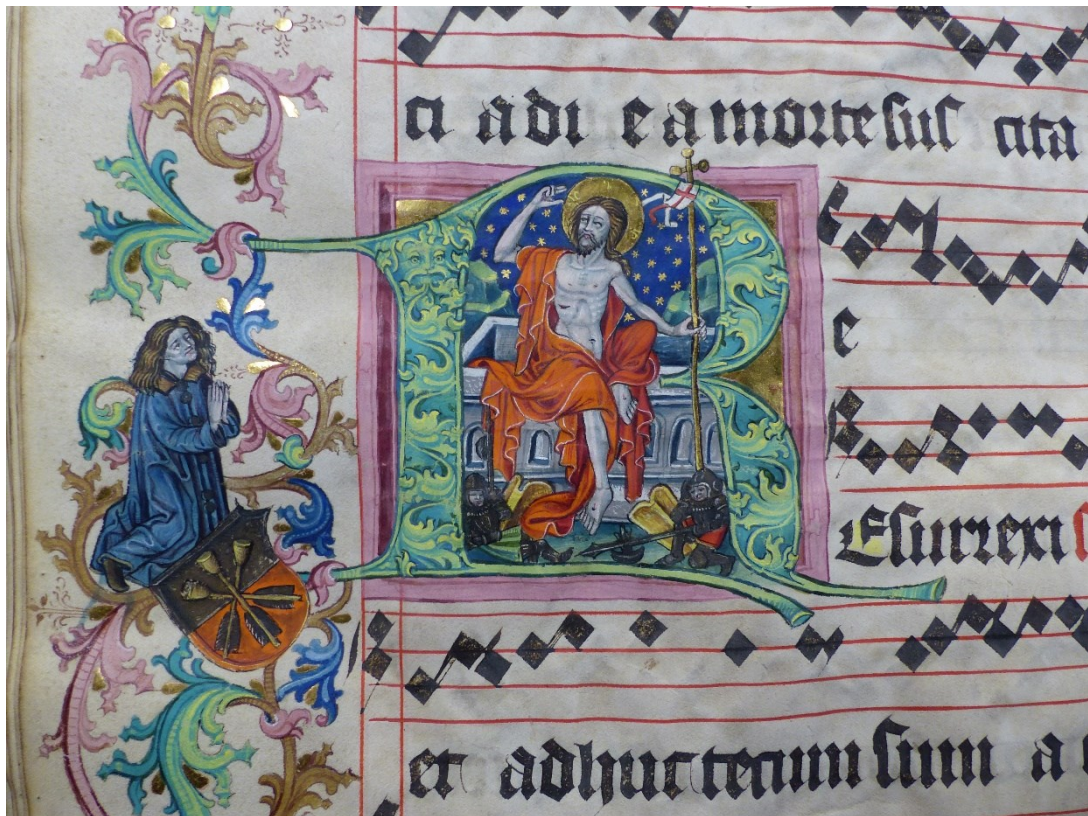 ci a di e a morte sus cita
e
R Esurrexi
et adhuc tecum sum a